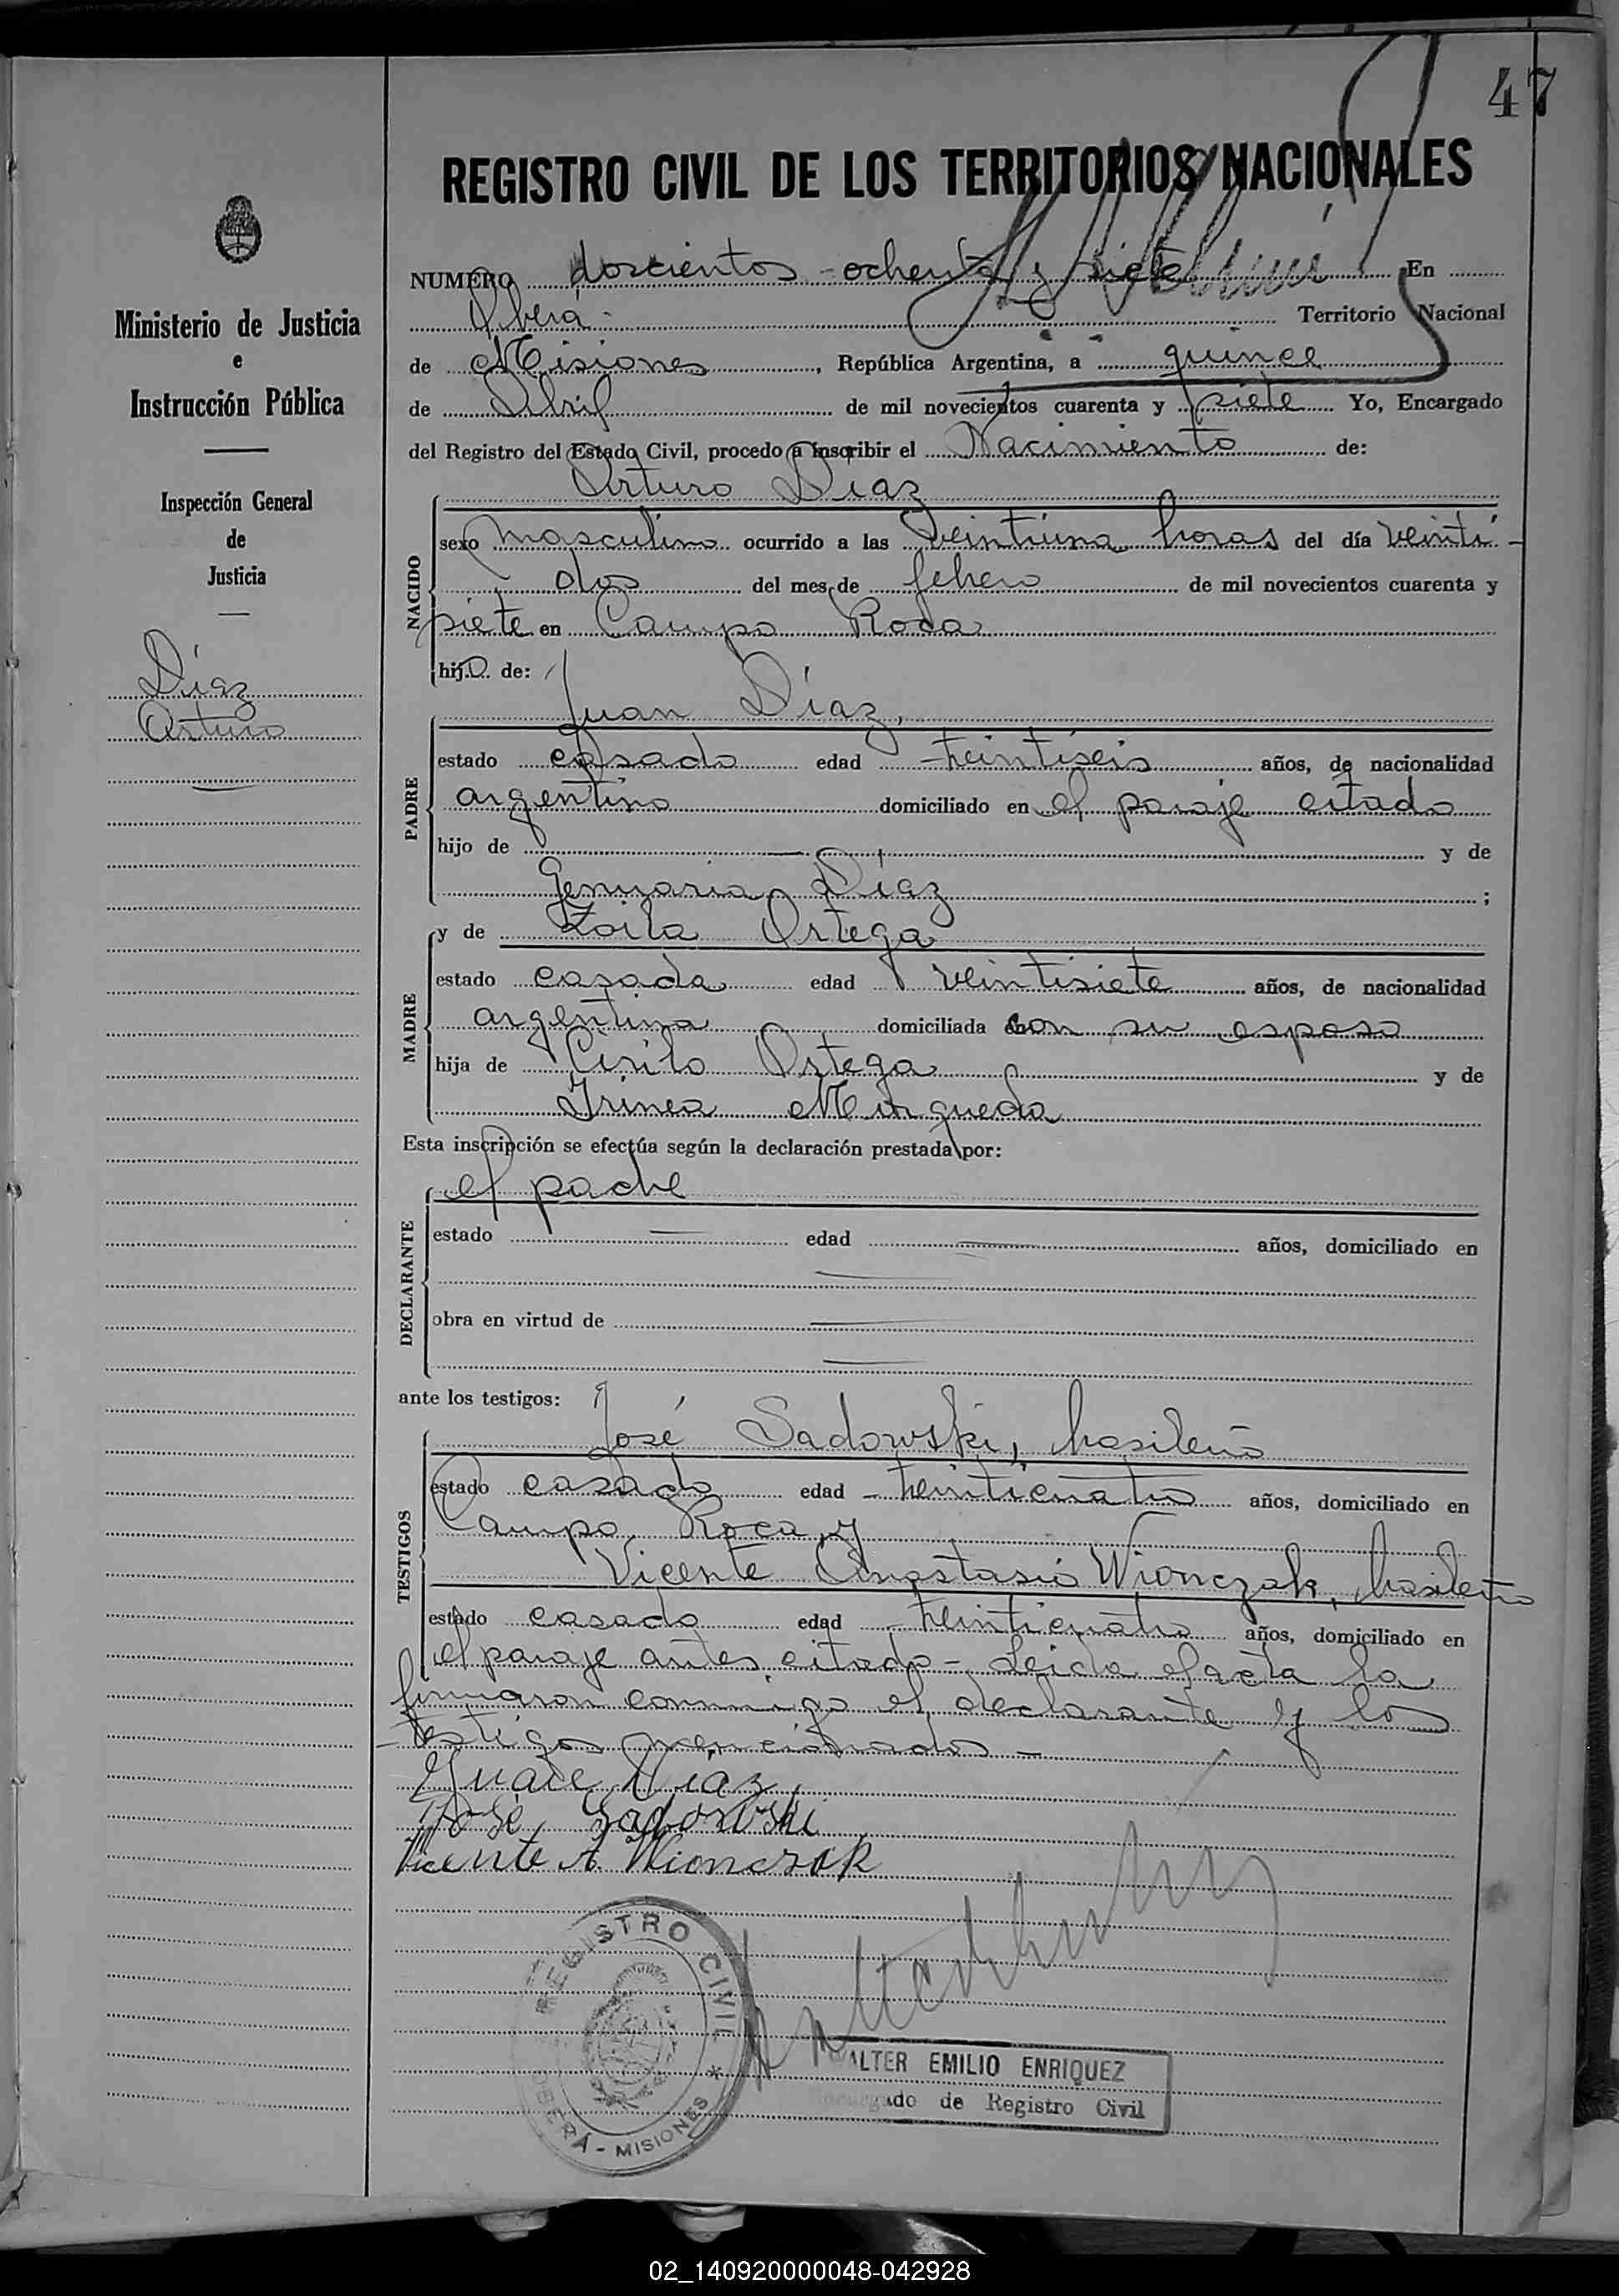 47
REGISTRO CIVIL DE LOS TERRITORIOS NACIONALES
Ministerio de Justicia
e
Instrucción Pública
Inspección General
de
Justicia
Díaz
Arturo
NUMERO doscientos - ochenta y siete En
Oberá - Territorio Nacional
de Misiones, República Argentina, a quince
de Abril de mil novecientos cuarenta y siete Yo, Encargado
del Registro del Estado Civil, procedo a inscribir el Nacimiento de:
Arturo Diaz
NACIDO
sexo masculino ocurrido a las veintiuna horas del día veinti-
dos del mes de febrero de mil novecientos cuarenta y
siete en Campo Roca
hijo de:
Juan Díaz,
PADRE
estado casado edad treintiseis años, de nacionalidad
argentino domiciliado en el paraje citado
hijo de — y de
Genuaria Díaz ;
MADRE
y de Zoila Ortega
estado casada edad veintisiete años, de nacionalidad
argentina domiciliada con su esposo
hija de Cirilo Ortega y de
Irinea Mungueda
Esta inscripción se efectúa según la declaración prestada por:
el padre
DECLARANTE
estado — edad — años, domiciliado en
—
obra en virtud de —
—
ante los testigos:
José Sadowski, brasileño
TESTIGOS
estado casado edad treinticuatro años, domiciliado en
Campo Roca y
Vicente Anastasio Wionczak, brasileño
estado casado edad treinticuatro años, domiciliado en
el paraje antes citado - Leida el acta la
firmaron conmigo el declarante y los
testigos mencionados -
Juan Diaz
José Sadowski
Vicente A Wionczak
REGISTRO CIVIL
OBERÁ - MISIONES
WALTER EMILIO ENRIQUEZ
Encargado de Registro Civil
02_140920000048-042928